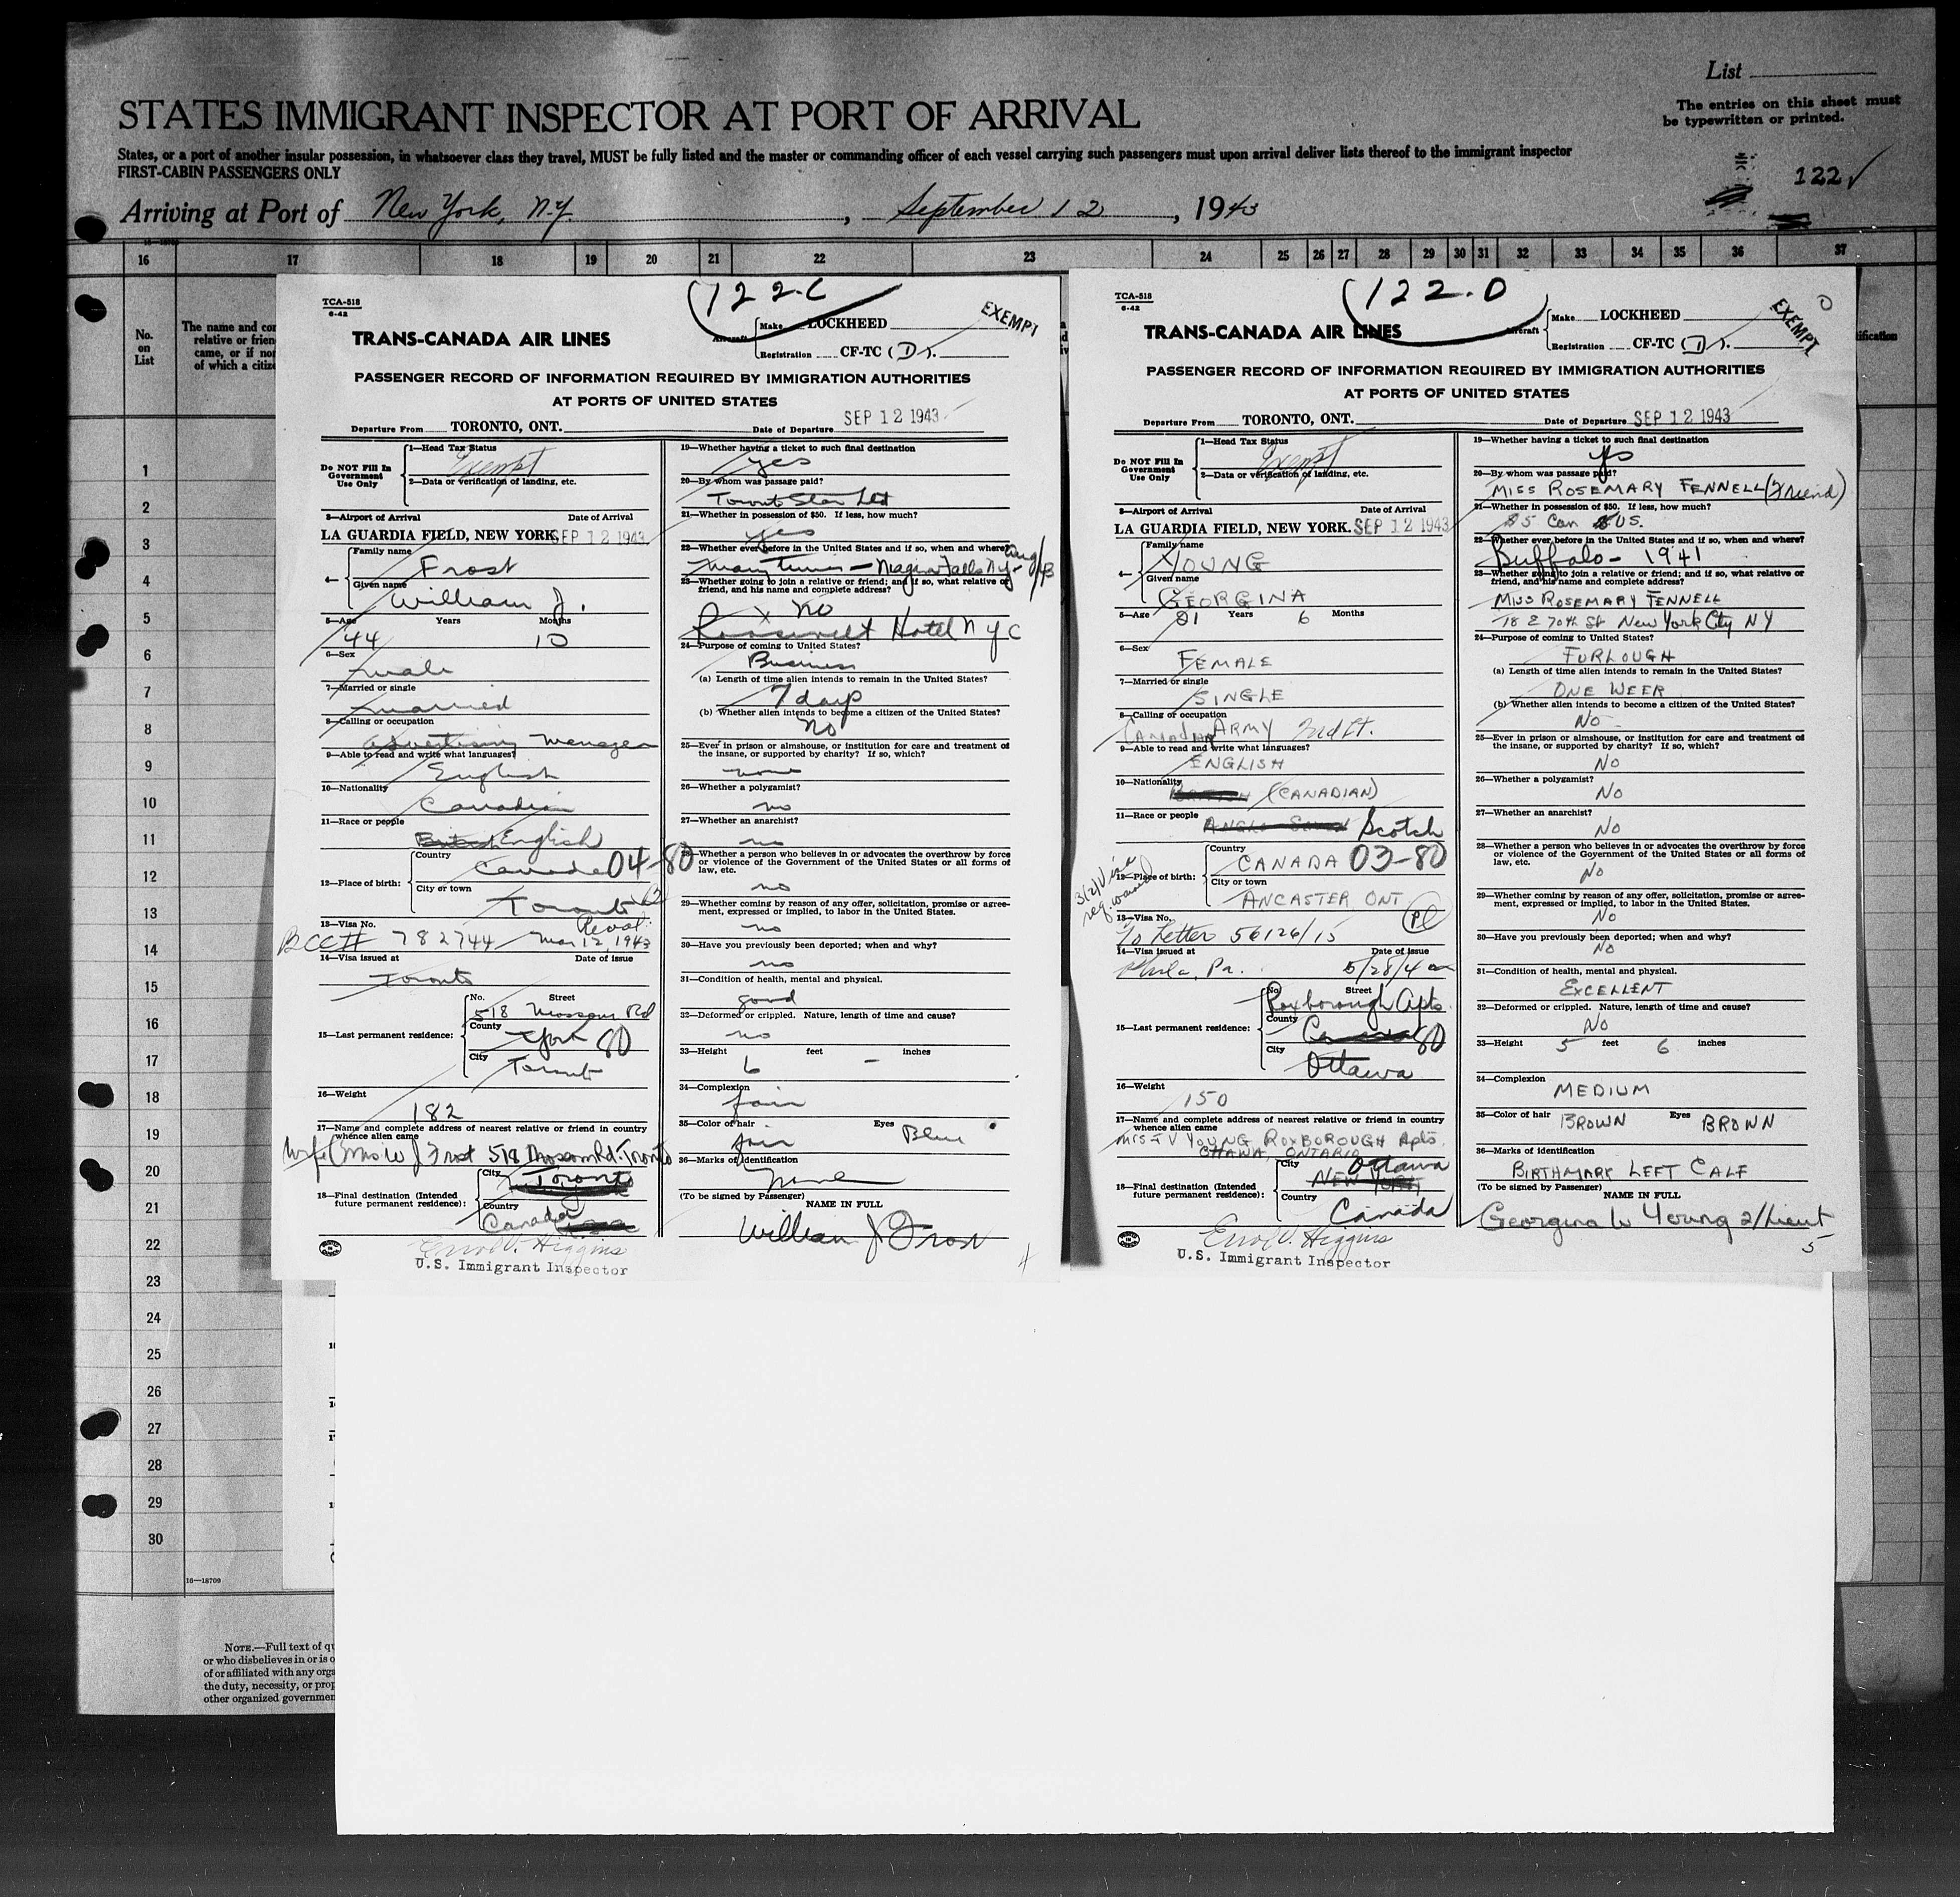 List
The entries on this sheet must
be typewritten or printed.
STATES IMMIGRANT INSPECTOR AT PORT OF ARRIVAL
States, or a port of another insular possession, in whatsoever class they travel, MUST be fully listed and the master or commanding officer of each vessel carrying such passengers must upon arrival deliver lists thereof to the immigrant inspector
FIRST-CABIN PASSENGERS ONLY
122 ✓
Arriving at Port of New York, N.Y. , September 12 , 1943
16 17 18 19 20 21 22 23 24 25 26 27 28 29 30 31 32 33 34 35 36 37
No.
on
List
The name and con
relative or frien
came, or if nor
of which a citize
ification
1
2
3
4
5
6
7
8
9
10
11
12
13
14
15
16
17
18
19
20
21
22
23
24
25
26
27
28
29
30
16—18709
NOTE.—Full text of qu
or who disbelieves in or is o
of or affiliated with any orga
the duty, necessity, or prop
other organized governmen
122-C
TCA-518
6-42
TRANS-CANADA AIR LINES
Aircraft
Make LOCKHEED
Registration CF-TC (D).
EXEMPT
PASSENGER RECORD OF INFORMATION REQUIRED BY IMMIGRATION AUTHORITIES
AT PORTS OF UNITED STATES
Departure From TORONTO, ONT. Date of Departure SEP 12 1943
Do NOT Fill In
Government
Use Only
1—Head Tax Status
Exempt
2—Data or verification of landing, etc.
3—Airport of Arrival Date of Arrival
LA GUARDIA FIELD, NEW YORK. SEP 12 1943
4— Family name
Frost
Given name
William J.
5—Age Years Months
44 10
6—Sex
male
7—Married or single
married
8—Calling or occupation
Advertising Manager
9—Able to read and write what languages?
English
10—Nationality
Canadian
11—Race or people
British English
12—Place of birth:
Country
Canada 04-80
City or town
Toronto
13—Visa No.
BCC# 782744 Mar 12, 1943
14—Visa issued at Date of issue
Toronto
15—Last permanent residence:
No. Street
518 Mossom Rd
County
York 80
City
Toronto
16—Weight
182
17—Name and complete address of nearest relative or friend in country
whence alien came
Wife (Mrs W J Frost 518 Mossom Rd. Toronto
18—Final destination (Intended
future permanent residence):
City
Toronto
Country
Canada
Errol V. Higgins
U.S. Immigrant Inspector
19—Whether having a ticket to such final destination
yes
20—By whom was passage paid?
Toronto Star Ltd
21—Whether in possession of $50. If less, how much?
yes
22—Whether ever before in the United States and if so, when and where?
many times — Niagara Falls NY - Aug/43
23—Whether going to join a relative or friend; and if so, what relative or
friend, and his name and complete address?
x no
Roosevelt Hotel N Y C
24—Purpose of coming to United States?
Business
(a) Length of time alien intends to remain in the United States?
7 days
(b) Whether alien intends to become a citizen of the United States?
No
25—Ever in prison or almshouse, or institution for care and treatment of
the insane, or supported by charity? If so, which?
none
26—Whether a polygamist?
no
27—Whether an anarchist?
no
28—Whether a person who believes in or advocates the overthrow by force
or violence of the Government of the United States or all forms of
law, etc.
no
29—Whether coming by reason of any offer, solicitation, promise or agree-
ment, expressed or implied, to labor in the United States.
no
30—Have you previously been deported; when and why?
no
31—Condition of health, mental and physical.
good
32—Deformed or crippled. Nature, length of time and cause?
no
33—Height feet inches
6 -
34—Complexion
fair
35—Color of hair Eyes
fair Blue
36—Marks of identification
none
(To be signed by Passenger)
NAME IN FULL
William J Frost
4
122-D
TCA-518
6-42
TRANS-CANADA AIR LINES
Aircraft
Make LOCKHEED
Registration CF-TC (D).
EXEMPT
PASSENGER RECORD OF INFORMATION REQUIRED BY IMMIGRATION AUTHORITIES
AT PORTS OF UNITED STATES
Departure From TORONTO, ONT. Date of Departure SEP 12 1943
Do NOT Fill In
Government
Use Only
1—Head Tax Status
Exempt
2—Data or verification of landing, etc.
3—Airport of Arrival Date of Arrival
LA GUARDIA FIELD, NEW YORK. SEP 12 1943
4— Family name
YOUNG
Given name
GEORGINA
5—Age Years Months
21 6
6—Sex
FEMALE
7—Married or single
SINGLE
8—Calling or occupation
CANADIAN ARMY 2nd Lt.
9—Able to read and write what languages?
ENGLISH
10—Nationality
(CANADIAN)
11—Race or people
Scotch
12—Place of birth:
Country
CANADA 03-80
City or town
ANCASTER ONT
13—Visa No.
Letter 56126/15
14—Visa issued at Date of issue
Phila, Pa. 5/28/4
15—Last permanent residence:
No. Street
Roxborough Apts.
County
80
City
Ottawa
16—Weight
150
17—Name and complete address of nearest relative or friend in country
whence alien came
MRS YOUNG ROXBOROUGH Apts.
OTTAWA, ONTARIO
18—Final destination (Intended
future permanent residence):
City
Ottawa
NEW YORK
Country
Canada
Errol V. Higgins
U.S. Immigrant Inspector
19—Whether having a ticket to such final destination
yes
20—By whom was passage paid?
MISS ROSEMARY FENNELL (Friend)
21—Whether in possession of $50. If less, how much?
US.
22—Whether ever before in the United States and if so, when and where?
Buffalo - 1941
23—Whether going to join a relative or friend; and if so, what relative or
friend, and his name and complete address?
MISS ROSEMARY FENNELL
18 E 70th St New York City NY
24—Purpose of coming to United States?
FURLOUGH
(a) Length of time alien intends to remain in the United States?
ONE WEEK
(b) Whether alien intends to become a citizen of the United States?
NO
25—Ever in prison or almshouse, or institution for care and treatment of
the insane, or supported by charity? If so, which?
NO
26—Whether a polygamist?
NO
27—Whether an anarchist?
NO
28—Whether a person who believes in or advocates the overthrow by force
or violence of the Government of the United States or all forms of
law, etc.
NO
29—Whether coming by reason of any offer, solicitation, promise or agree-
ment, expressed or implied, to labor in the United States.
NO
30—Have you previously been deported; when and why?
NO
31—Condition of health, mental and physical.
EXCELLENT
32—Deformed or crippled. Nature, length of time and cause?
NO
33—Height 5 feet 6 inches
34—Complexion
MEDIUM
35—Color of hair BROWN Eyes BROWN
36—Marks of identification
BIRTHMARK LEFT CALF
(To be signed by Passenger)
NAME IN FULL
Georgina W Young 2/Lieut
5